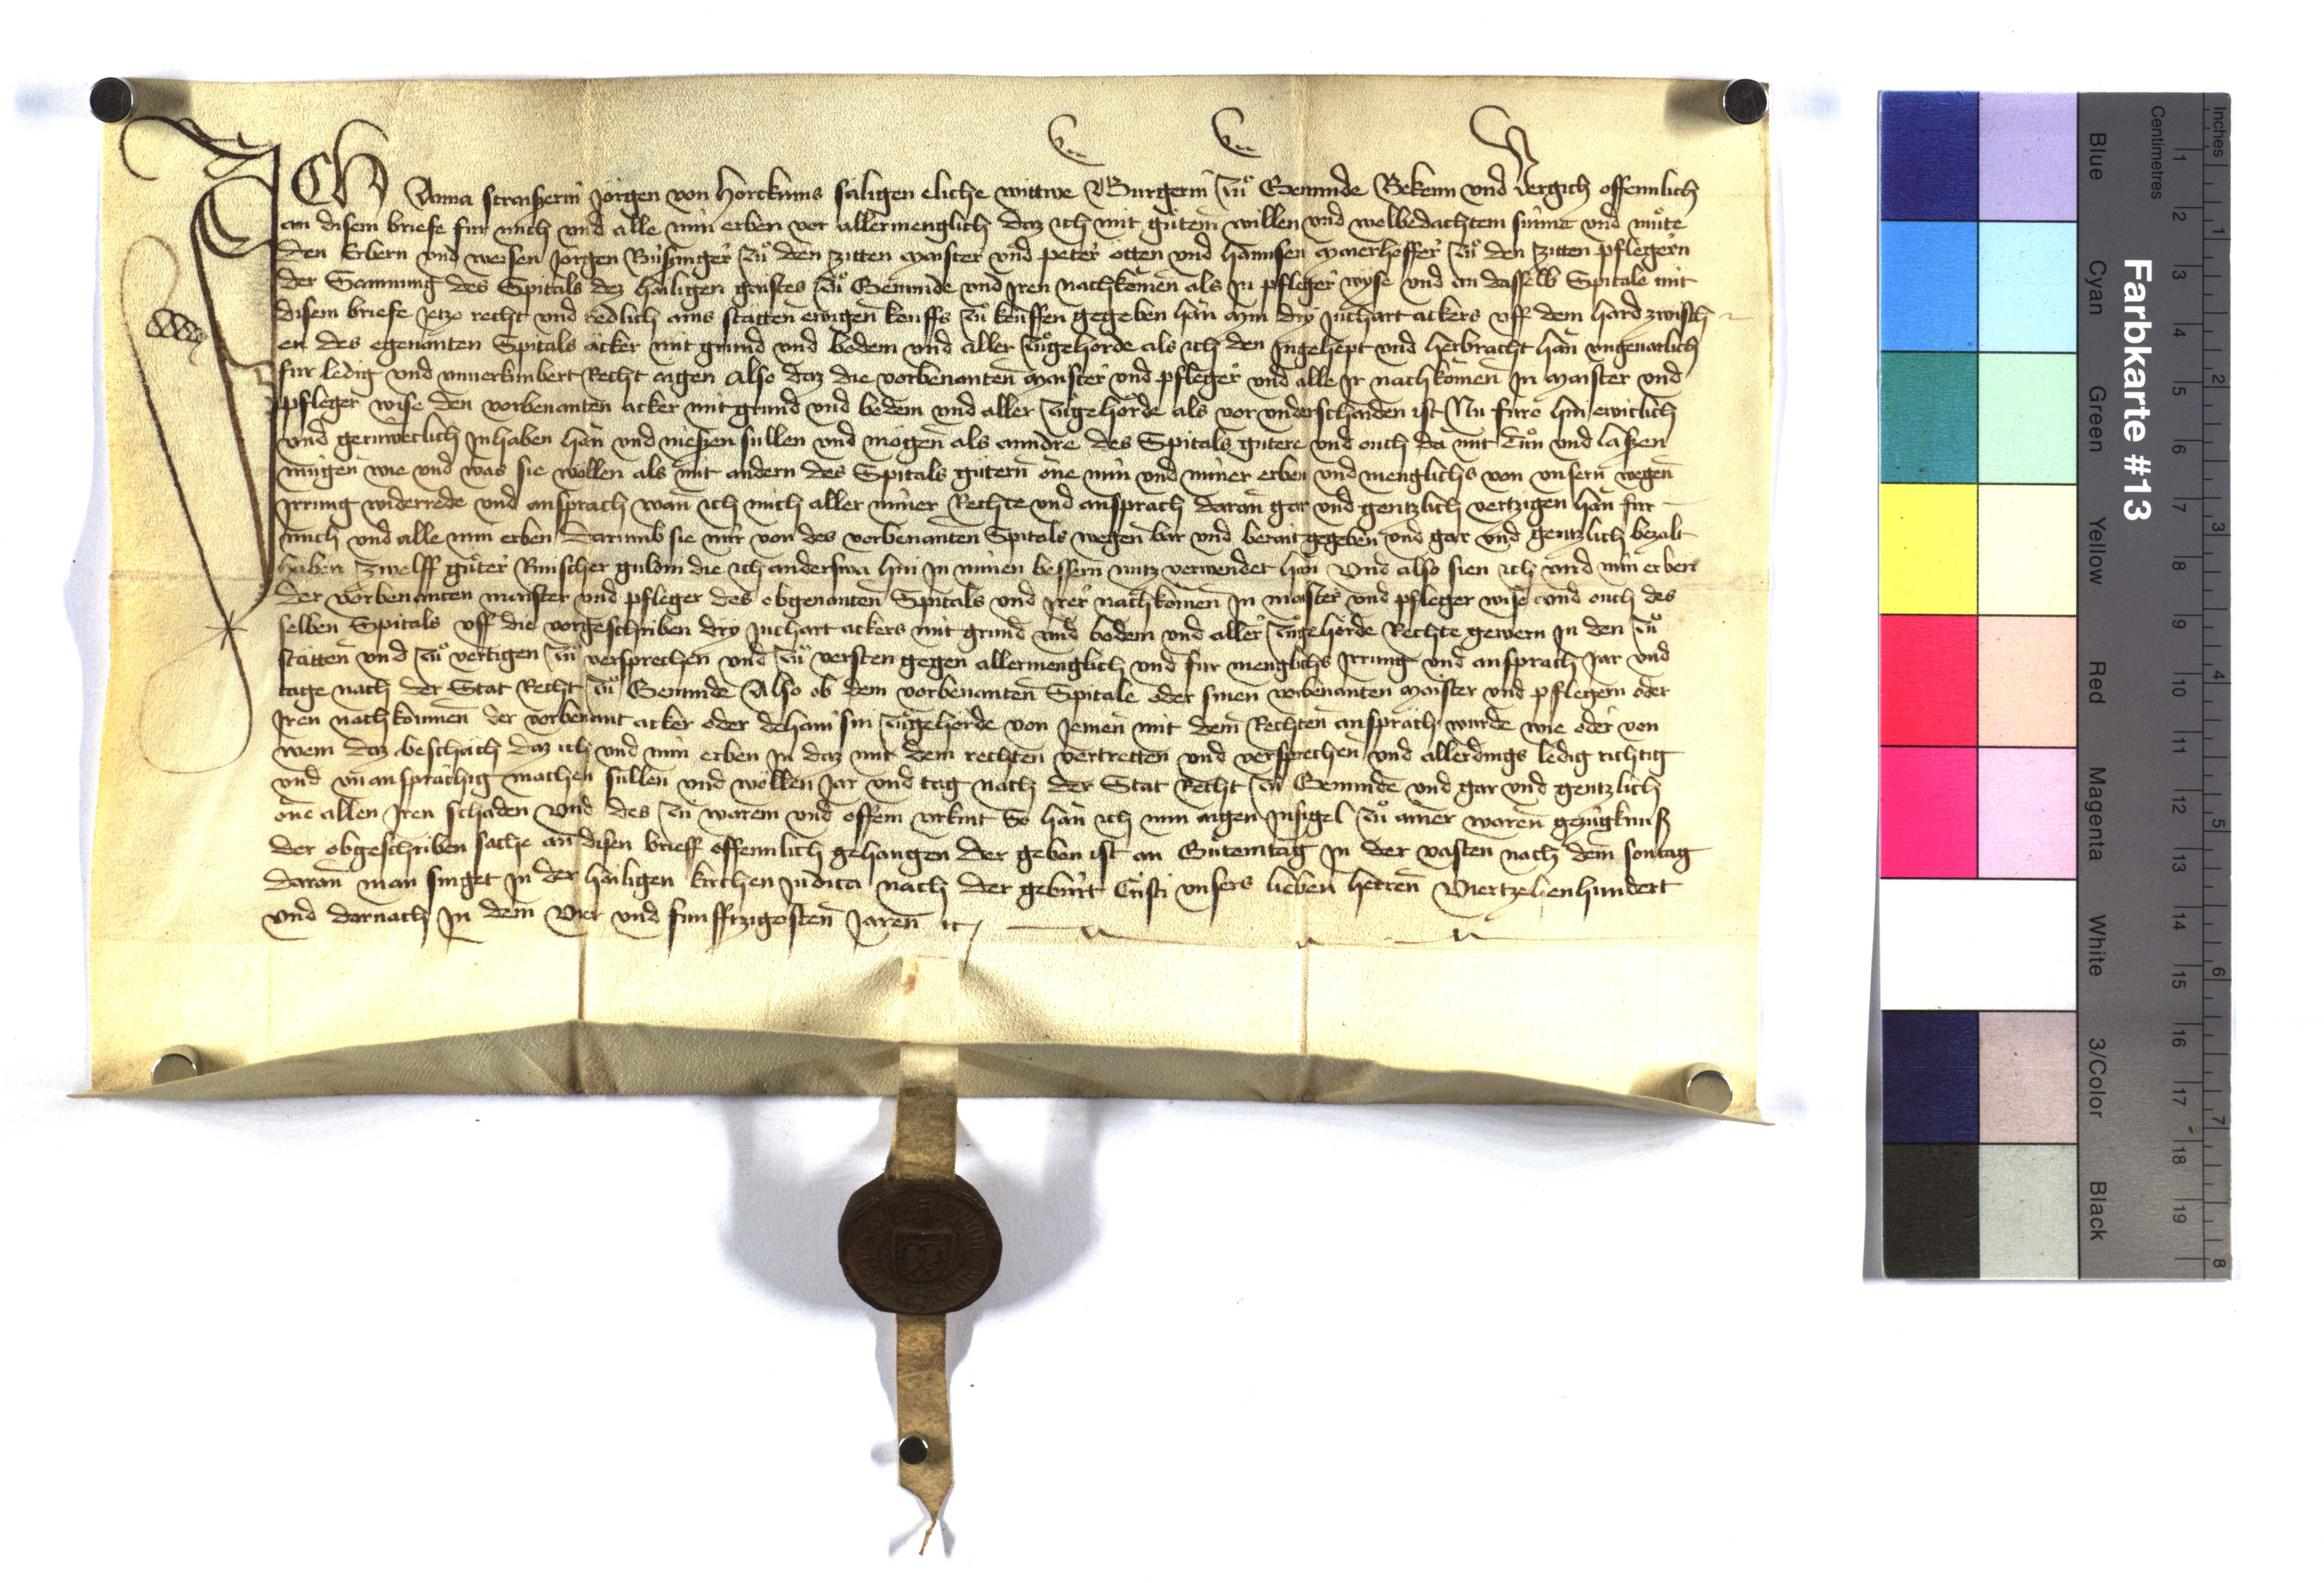 Ich Anna straiszerin Jörgen von Horckains säligen eliche wittwe Burgerin zů Gemünde Bekenn und vergich offennlich
an disem briefe fur mich und alle min erben vor allermenglich daz ich mit gůtem willen und wolbedachtem sinne und můte
den Erbern und weisen Jörgen zů den zitten maister und peter otten und hannsen zů den zitten pflegern
der Samnung des Spitals dez hailigen gaistes zů Gemünde und Iren nachkomen als In pfleger wyse und an dasselb Spitale mit
disem briefe Jetzo recht und redlich ains stätten ewigen kouffs zů kouffen gegeben hän min dry Juchart ackers uff dem hard zwisch
en des egenanten Spitals äcker mit grund und bodem und aller zůgehörde als ich den Ingehept und herbracht hän ungenarlich
fur ledig und unuerkimbert Recht aigen Also daz die vorbenanten maister und pfleger und alle Ir nachkomen In maister und
pfleger wise den vorbenanten acker mit grund und bodem und aller zůgehörde als vor underschaiden ist Nu füro hin ewiclich
und gerüweclich Inhaben hän und nieszen sullen und mögen als anndre des Spitals gütere und ouch da mit tůn und laszen
mügen wie und was sie wollen als mit andern des Spitals gütern one min und miner erben und menglichs von unsern wegen
Irrung widerrede und ansprach wan ich mich aller miner Rechte und ansprach daran gar und gentzlich vertzigen hän fur
mich und alle min erben Darumb sie mir von des vorbenanten Spitals wegen bar und berait gegeben und gar und gentzlich bezalt
haben zwelff gůter Rinischer guldin die ich anderswa hin In minen bessern nutz verwendet hän Und also sien ich und min erben
der vorbenanten maister und pfleger des obgenanten Spitals und Irer nachkomen In maister und pfleger wise und ouch des
selben Spitals uff die vorgeschriben dry Juchart ackers mit grund und bodem und aller zůgehörde Rechte gewern In den zů
stätten und zů vertigen zů versprechen und zů versten gegen allermenglich und fur menglichs Irrung und ansprach Jar und
tage nach der Stat Recht zů Gemünde Also ob dem vorbenanten Spitale oder sinen vorbenanten maister und pflegern oder
Iren nachkommen der vorbenant acker oder dehain sin zůgehörde von Jemen mit dem Rechten anspräch wurde wie oder von
wem daz beschäch daz ich und min erben In daz mit dem rechten vertretten und versprechen und allerdings ledig richtig
und unanspråchig machen süllen und wöllen Jar und tag nach der Stat Recht zů Gemünde und gar und gentzlich
one allen Iren schaden Und des zů warem und offem urkint So hän ich min aigen Insigel zů ainer waren gezügknusz
der obgeschriben sache an disen brieff offennlich gehangen Der geben ist an Gůtemtag In der vasten nach dem sontag
daran man singet In der hailigen kirchen Iudica nach der gebürt Cristi unsers lieben herren Viertzehenhundert
und darnach In dem Vier und funfftzigosten Jaren
Farbkarte #13
Blue Cyan Green Yellow Red Magenta White 3/Color Black
Centimetres 1 2 3 4 5 6 7 8 9 10 11 12 13 14 15 16 17 18 19
Inches 1 2 3 4 5 6 7 8